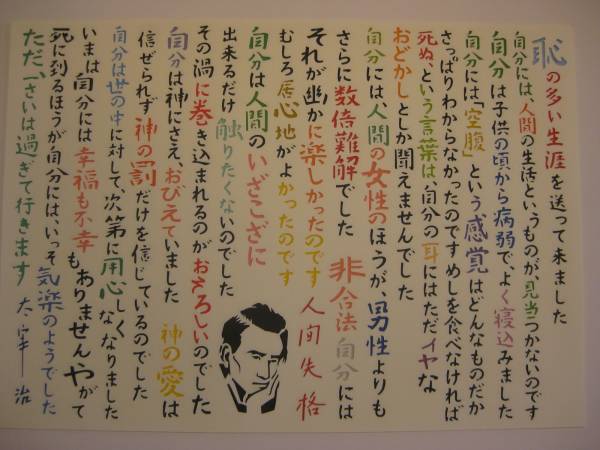 恥の多い生涯を送って来ました
自分には、人間の生活というものが、見当つかないのです
自分は子供の頃から病弱で、よく寝込みました
自分には「空腹」という感覚はどんなものだか
さっぱりわからなかったのです めしを食べなければ
死ぬ、という言葉は、自分の耳にはただイヤな
おどかしとしか聞えませんでした
自分には、人間の女性のほうが、男性よりも
さらに数倍難解でした 非合法 自分には
それが幽かに楽しかったのです 人间失格
むしろ居心地がよかったのです
自分は人間のいざこざに
出来るだけ触りたくないのでした
その渦に巻き込まれるのがおそろしいのでした
自分は神にさえ、おびえていました 神の愛は
信ぜられず神の罰だけを信じているのでした
自分は世の中に対して、次第に用心しなくなりました
いまは自分には幸福も不幸もありません やがて
死に到るほうが自分には、いっそ気楽のようでした
ただ、いっさいは過ぎて行きます 太宰治